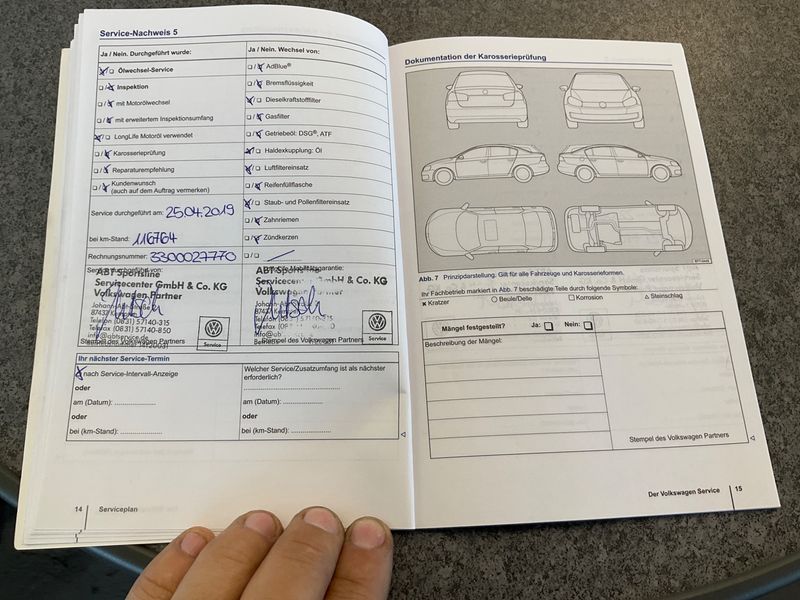 Service-Nachweis 5
Ja / Nein. Durchgeführt wurde:
Ölwechsel-Service
Inspektion
mit Motorölwechsel
mit erweitertem Inspektionsumfang
LongLife Motoröl verwendet
Karosserieprüfung
Reparaturempfehlung
Kundenwunsch
(auch auf dem Auftrag vermerken)
Service durchgeführt am: 25.04.2019
bei km-Stand: 116764
Rechnungsnummer: 3300027770
ABT Sportsline
Servicecenter GmbH & Co. KG
Volkswagen Partner
Telefon (0831) 57140-315
Telefax (0831) 57140-850
info@abtservice.de
Stempel des Volkswagen Partners
Service
Ja / Nein. Wechsel von:
AdBlue®
Bremsflüssigkeit
Dieselkraftstofffilter
Gasfilter
Getriebeöl: DSG®, ATF
Haldexkupplung: Öl
Luftfiltereinsatz
Reifenfüllflasche
Staub- und Pollenfiltereinsatz
Zahnriemen
Zündkerzen
Mobilitätsgarantie:
ABT Sportsline
Servicecenter GmbH & Co. KG
Volkswagen Partner
Stempel des Volkswagen Partners
Service
Ihr nächster Service-Termin
nach Service-Intervall-Anzeige
oder
am (Datum):
oder
bei (km-Stand):
Welcher Service/Zusatzumfang ist als nächster
erforderlich?
am (Datum):
oder
bei (km-Stand):
14 Serviceplan
Dokumentation der Karosserieprüfung
Abb. 7 Prinzipdarstellung. Gilt für alle Fahrzeuge und Karosserieformen.
Ihr Fachbetrieb markiert in Abb. 7 beschädigte Teile durch folgende Symbole:
Kratzer Beule/Delle Korrosion Steinschlag
Mängel festgestellt? Ja: Nein:
Beschreibung der Mängel:
Stempel des Volkswagen Partners
Der Volkswagen Service 15